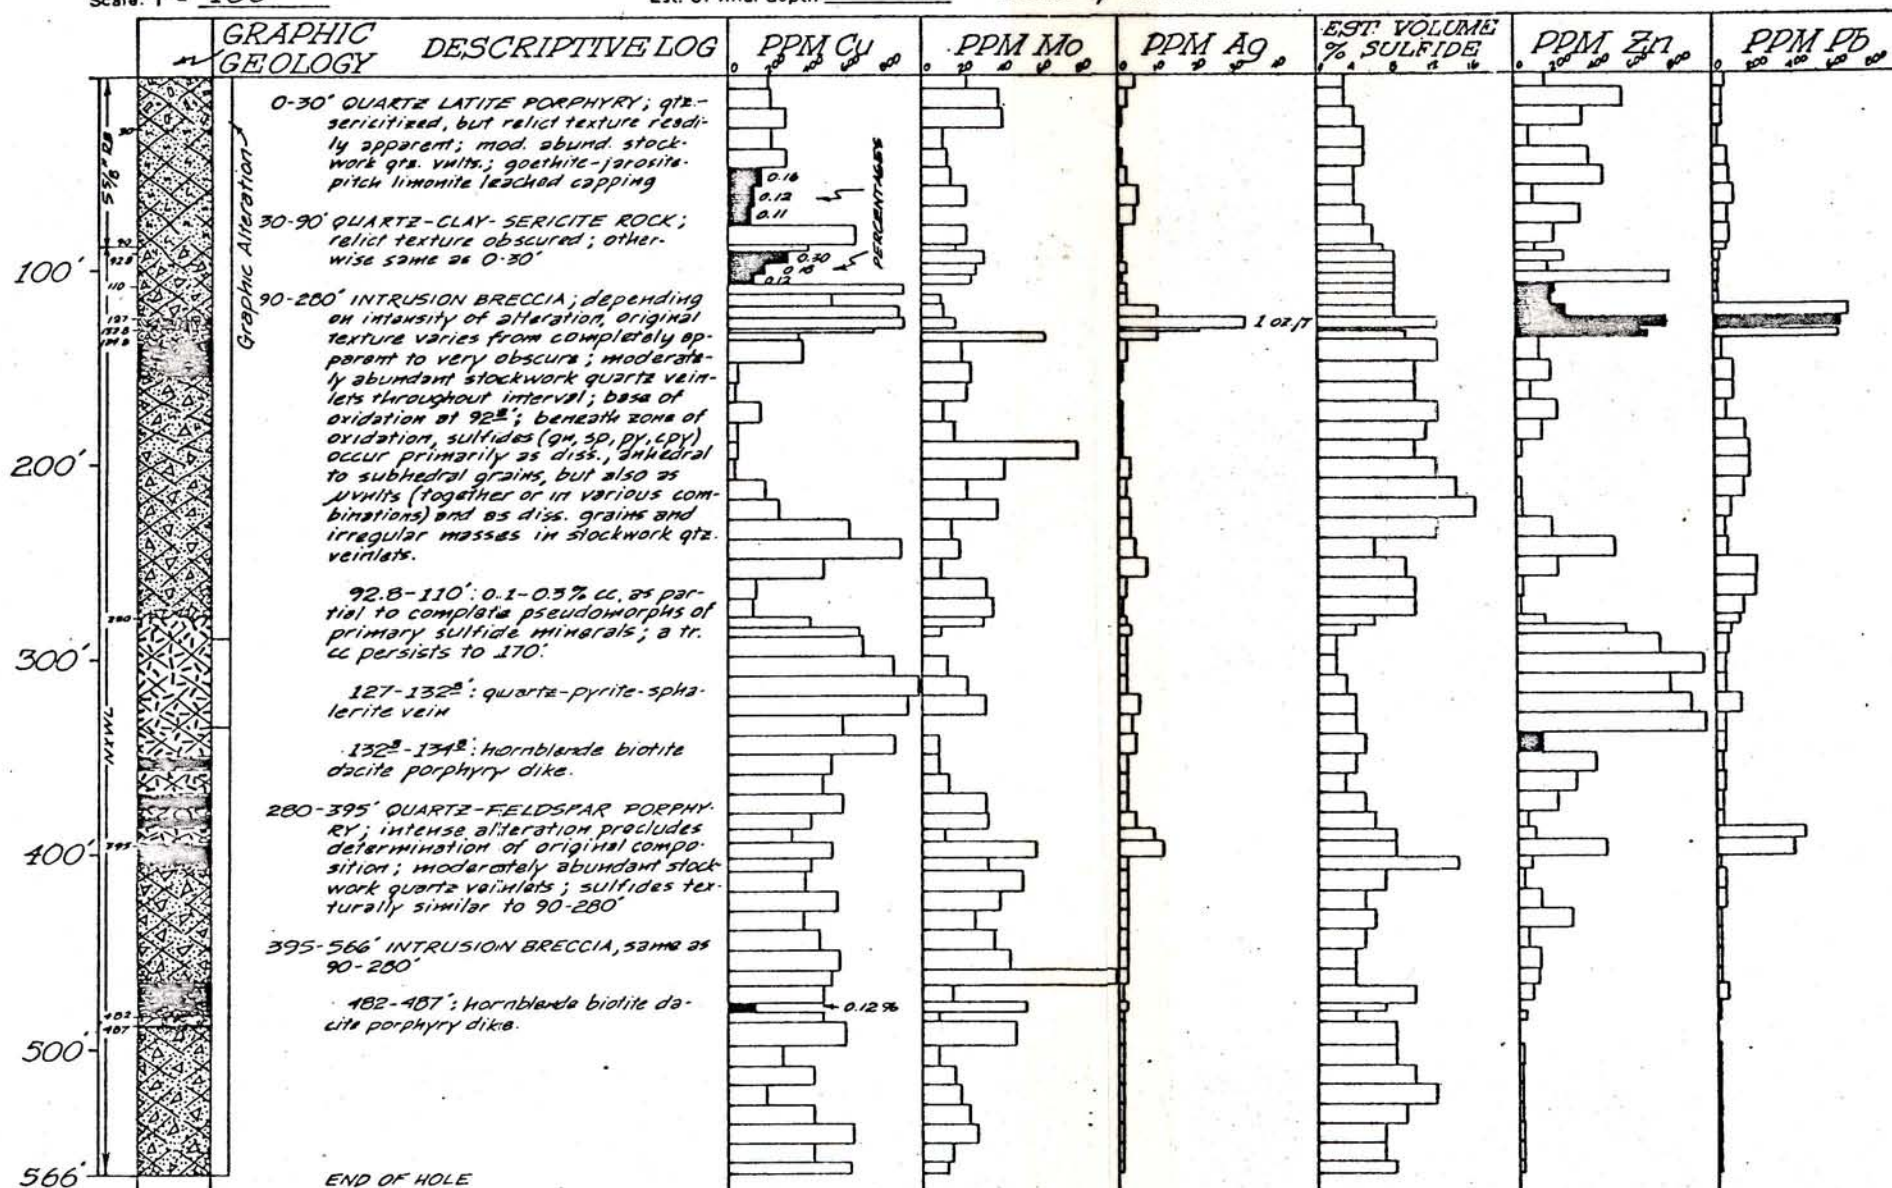 Scale: 1" = 100'
Est. of final depth
GRAPHIC GEOLOGY
DESCRIPTIVE LOG
PPM Cu
0 200 400 600 800
PPM Mo
0 20 40 60 80
PPM Ag
0 10 20 30 40
EST. VOLUME % SULFIDE
4 8 12 16
PPM Zn
0 200 400 600 800
PPM Pb
0 200 400 600 800
5 5/8" RB
NXWL
Graphic Alteration
30
90
92.8
110
127
132.8
134.8
280
395
482
487
100'
200'
300'
400'
500'
566'
0-30' QUARTZ LATITE PORPHYRY; qtz.-
sericitized, but relict texture readi-
ly apparent; mod. abund. stock-
work qtz. vnlts.; goethite-jarosite-
pitch limonite leached capping
30-90' QUARTZ-CLAY-SERICITE ROCK;
relict texture obscured; other-
wise same as 0-30'
90-280' INTRUSION BRECCIA; depending
on intensity of alteration, original
texture varies from completely ap-
parent to very obscure; moderate-
ly abundant stockwork quartz vein-
lets throughout interval; base of
oxidation at 92.8'; beneath zone of
oxidation, sulfides (gn, sp, py, cpy)
occur primarily as diss., anhedral
to subhedral grains, but also as
μvnlts (together or in various com-
binations) and as diss. grains and
irregular masses in stockwork qtz.
veinlets.
92.8-110': 0.1-0.3% cc, as par-
tial to complete pseudomorphs of
primary sulfide minerals; a tr.
cc persists to 170'.
127-132.8': quartz-pyrite-spha-
lerite vein
132.8-134.8': hornblende biotite
dacite porphyry dike.
280-395' QUARTZ-FELDSPAR PORPHY-
RY; intense alteration precludes
determination of original compo-
sition; moderately abundant stock-
work quartz veinlets; sulfides tex-
turally similar to 90-280'
395-566' INTRUSION BRECCIA, same as
90-280'
482-487': hornblende biotite da-
cite porphyry dike.
END OF HOLE
0.16
0.12
0.11
PERCENTAGES
0.30
0.18
0.12
1 oz./T
0.12%